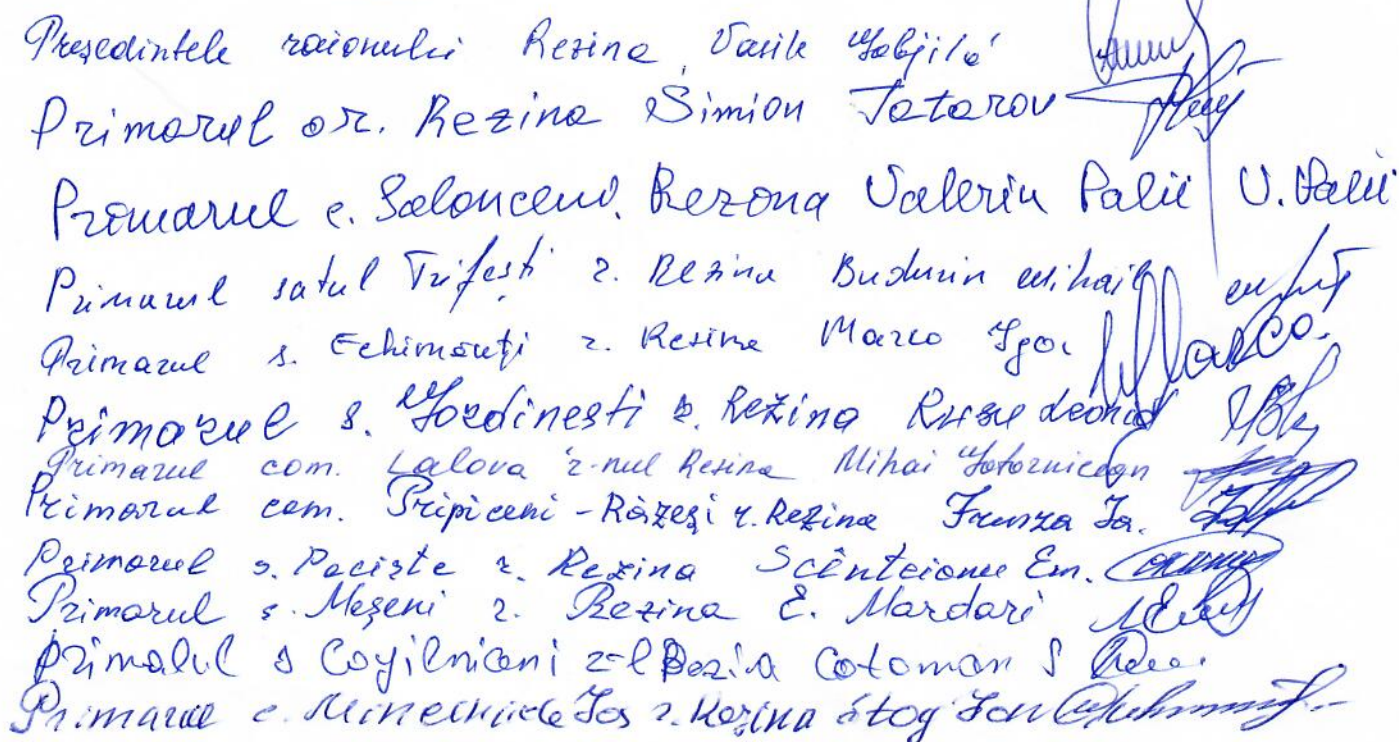 Președintele raionului Rezina, Vasile
Primarul or. Rezina Simion Tatarov
Primarul c. Solonceni, Rezina Valeriu Palii V. Palii
Primarul satul Trifești r. Rezina Budurin Mihail
Primarul s. Echimăuți r. Rezina Marco Igor Marco.
Primarul s. Gordinești r. Rezina Rusu Leonid
Primarul com. Lalova r-nul Rezina Mihai
Primarul com. Pripiceni-Răzeși r. Rezina Frunza Ia.
Primarul s. Peciște r. Rezina Scînteianu Em.
Primarul s. Meșeni r. Rezina E. Mardari
Primarul s Cogîlniceni r-l Rezina Cotoman S
Primarul c. Mincenii de Jos r. Rezina Stog Ion